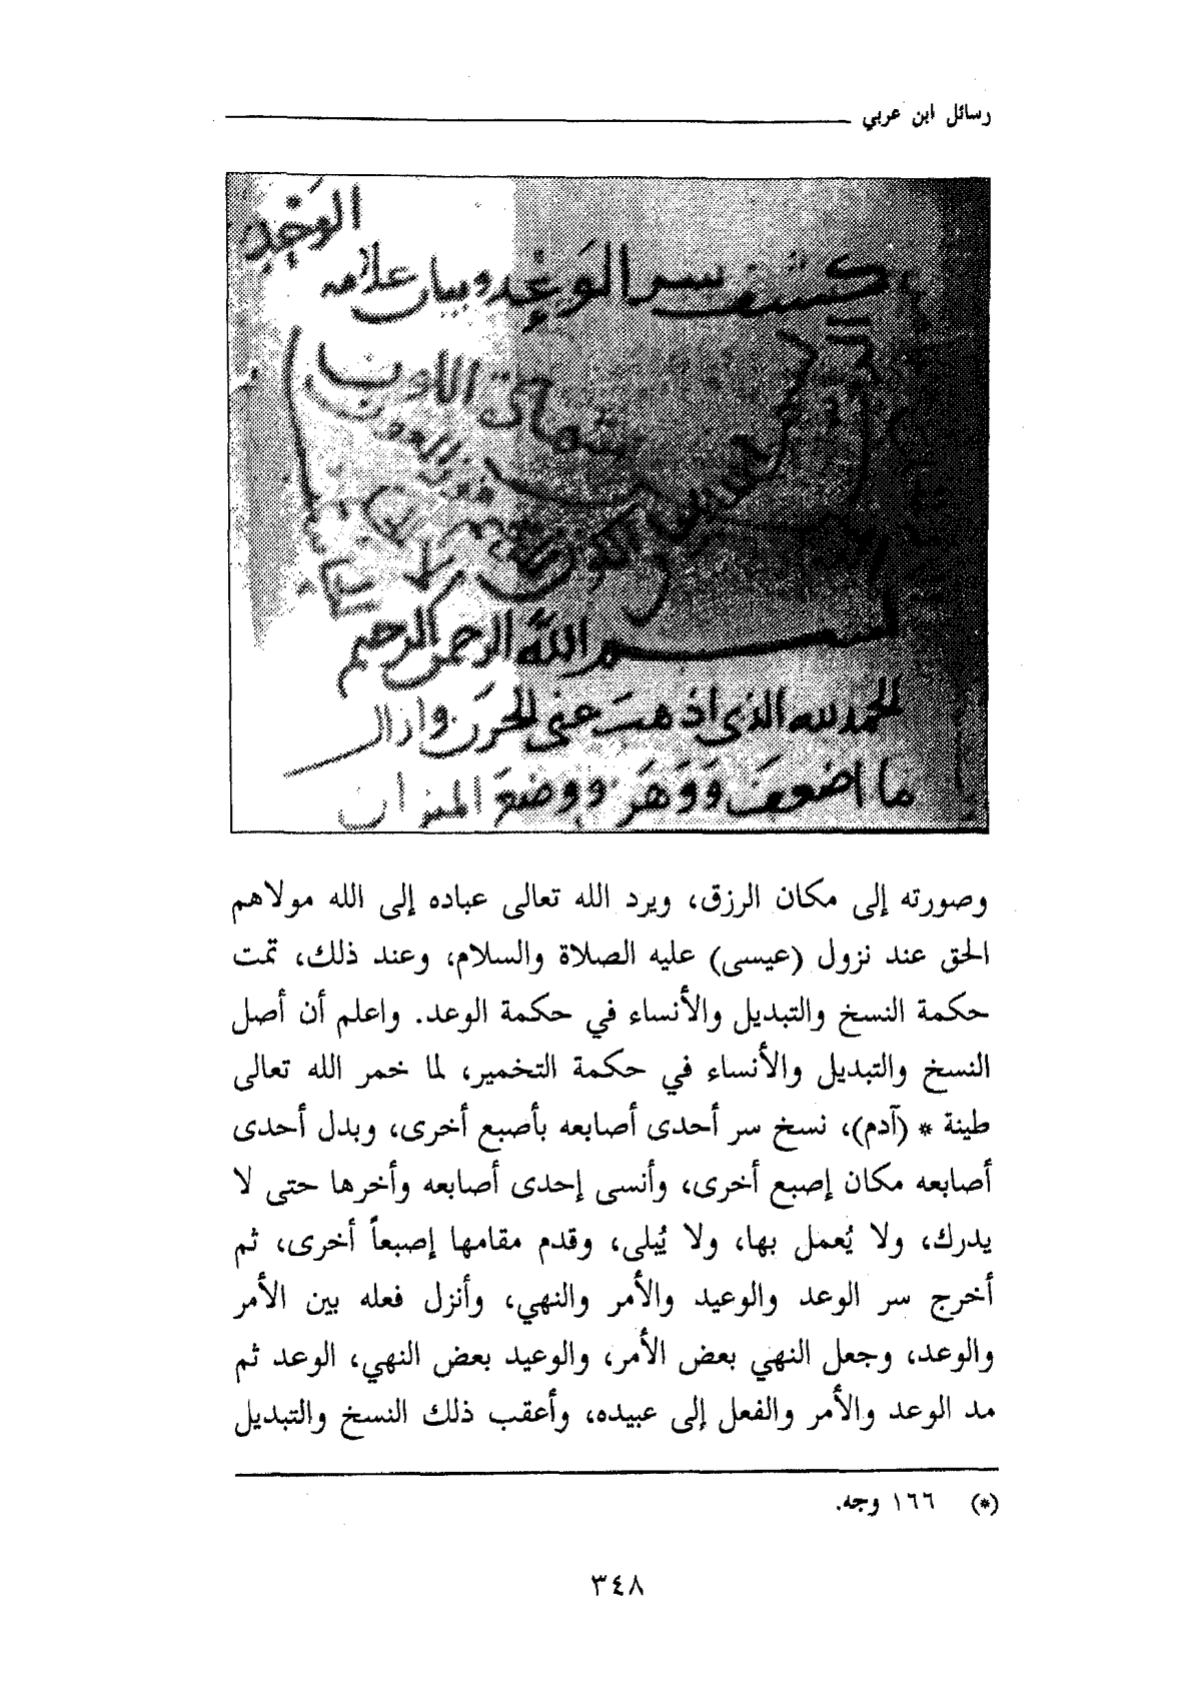 رسائل ابن عربي
الوجد
كشف سر الوعد وبيان علامه
بسم الله الرحمن الرحيم
الحمد لله الذى اذهب عنى الحزن وازال
ما اضعف ووهن ووضع الميزان
وصورته إلى مكان الرزق، ويرد الله تعالى عباده إلى الله مولاهم
الحق عند نزول (عيسى) عليه الصلاة والسلام، وعند ذلك، تمت
حكمة النسخ والتبديل والأنساء في حكمة الوعد. واعلم أن أصل
النسخ والتبديل والأنساء في حكمة التخمير، لما خمر الله تعالى
طينة * (آدم)، نسخ سر أحدى أصابعه بأصبع أخرى، وبدل أحدى
أصابعه مكان إصبع أخرى، وأنسى إحدى أصابعه وأخرها حتى لا
يدرك، ولا يُعمل بها، ولا يُبلى، وقدم مقامها إصبعاً أخرى، ثم
أخرج سر الوعد والوعيد والأمر والنهي، وأنزل فعله بين الأمر
والوعد، وجعل النهي بعض الأمر، والوعيد بعض النهي، الوعد ثم
مد الوعد والأمر والفعل إلى عبيده، وأعقب ذلك النسخ والتبديل
(*) ١٦٦ وجه.
٣٤٨